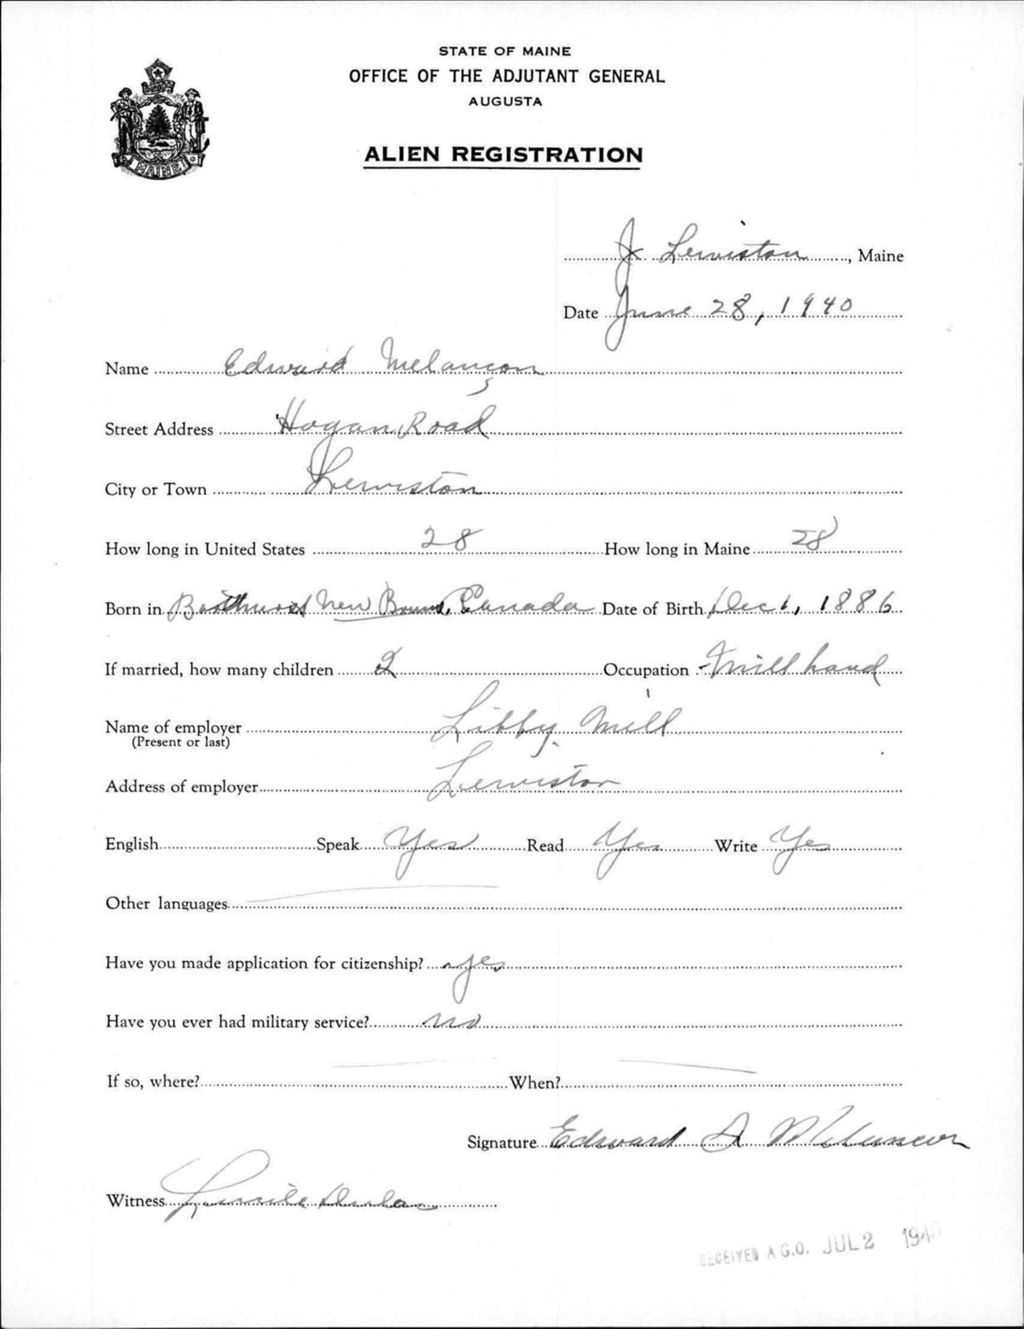 STATE OF MAINE
OFFICE OF THE ADJUTANT GENERAL
AUGUSTA
MAINE
ALIEN REGISTRATION
Lewiston, Maine
Date June 28, 1940
Name Edward Melançon
Street Address Hogan Road
City or Town Lewiston
How long in United States 28 How long in Maine 28
Born in New Canada Date of Birth Dec 1, 1886
If married, how many children 2 Occupation Mill hand
Name of employer Libby Mill
(Present or last)
Address of employer Lewiston
English Speak Yes Read Yes Write Yes
Other languages
Have you made application for citizenship? yes
Have you ever had military service? no
If so, where? When?
Signature Edward A Melancon
Witness Lucile
RECEIVED A.G.O. JUL 2 1940